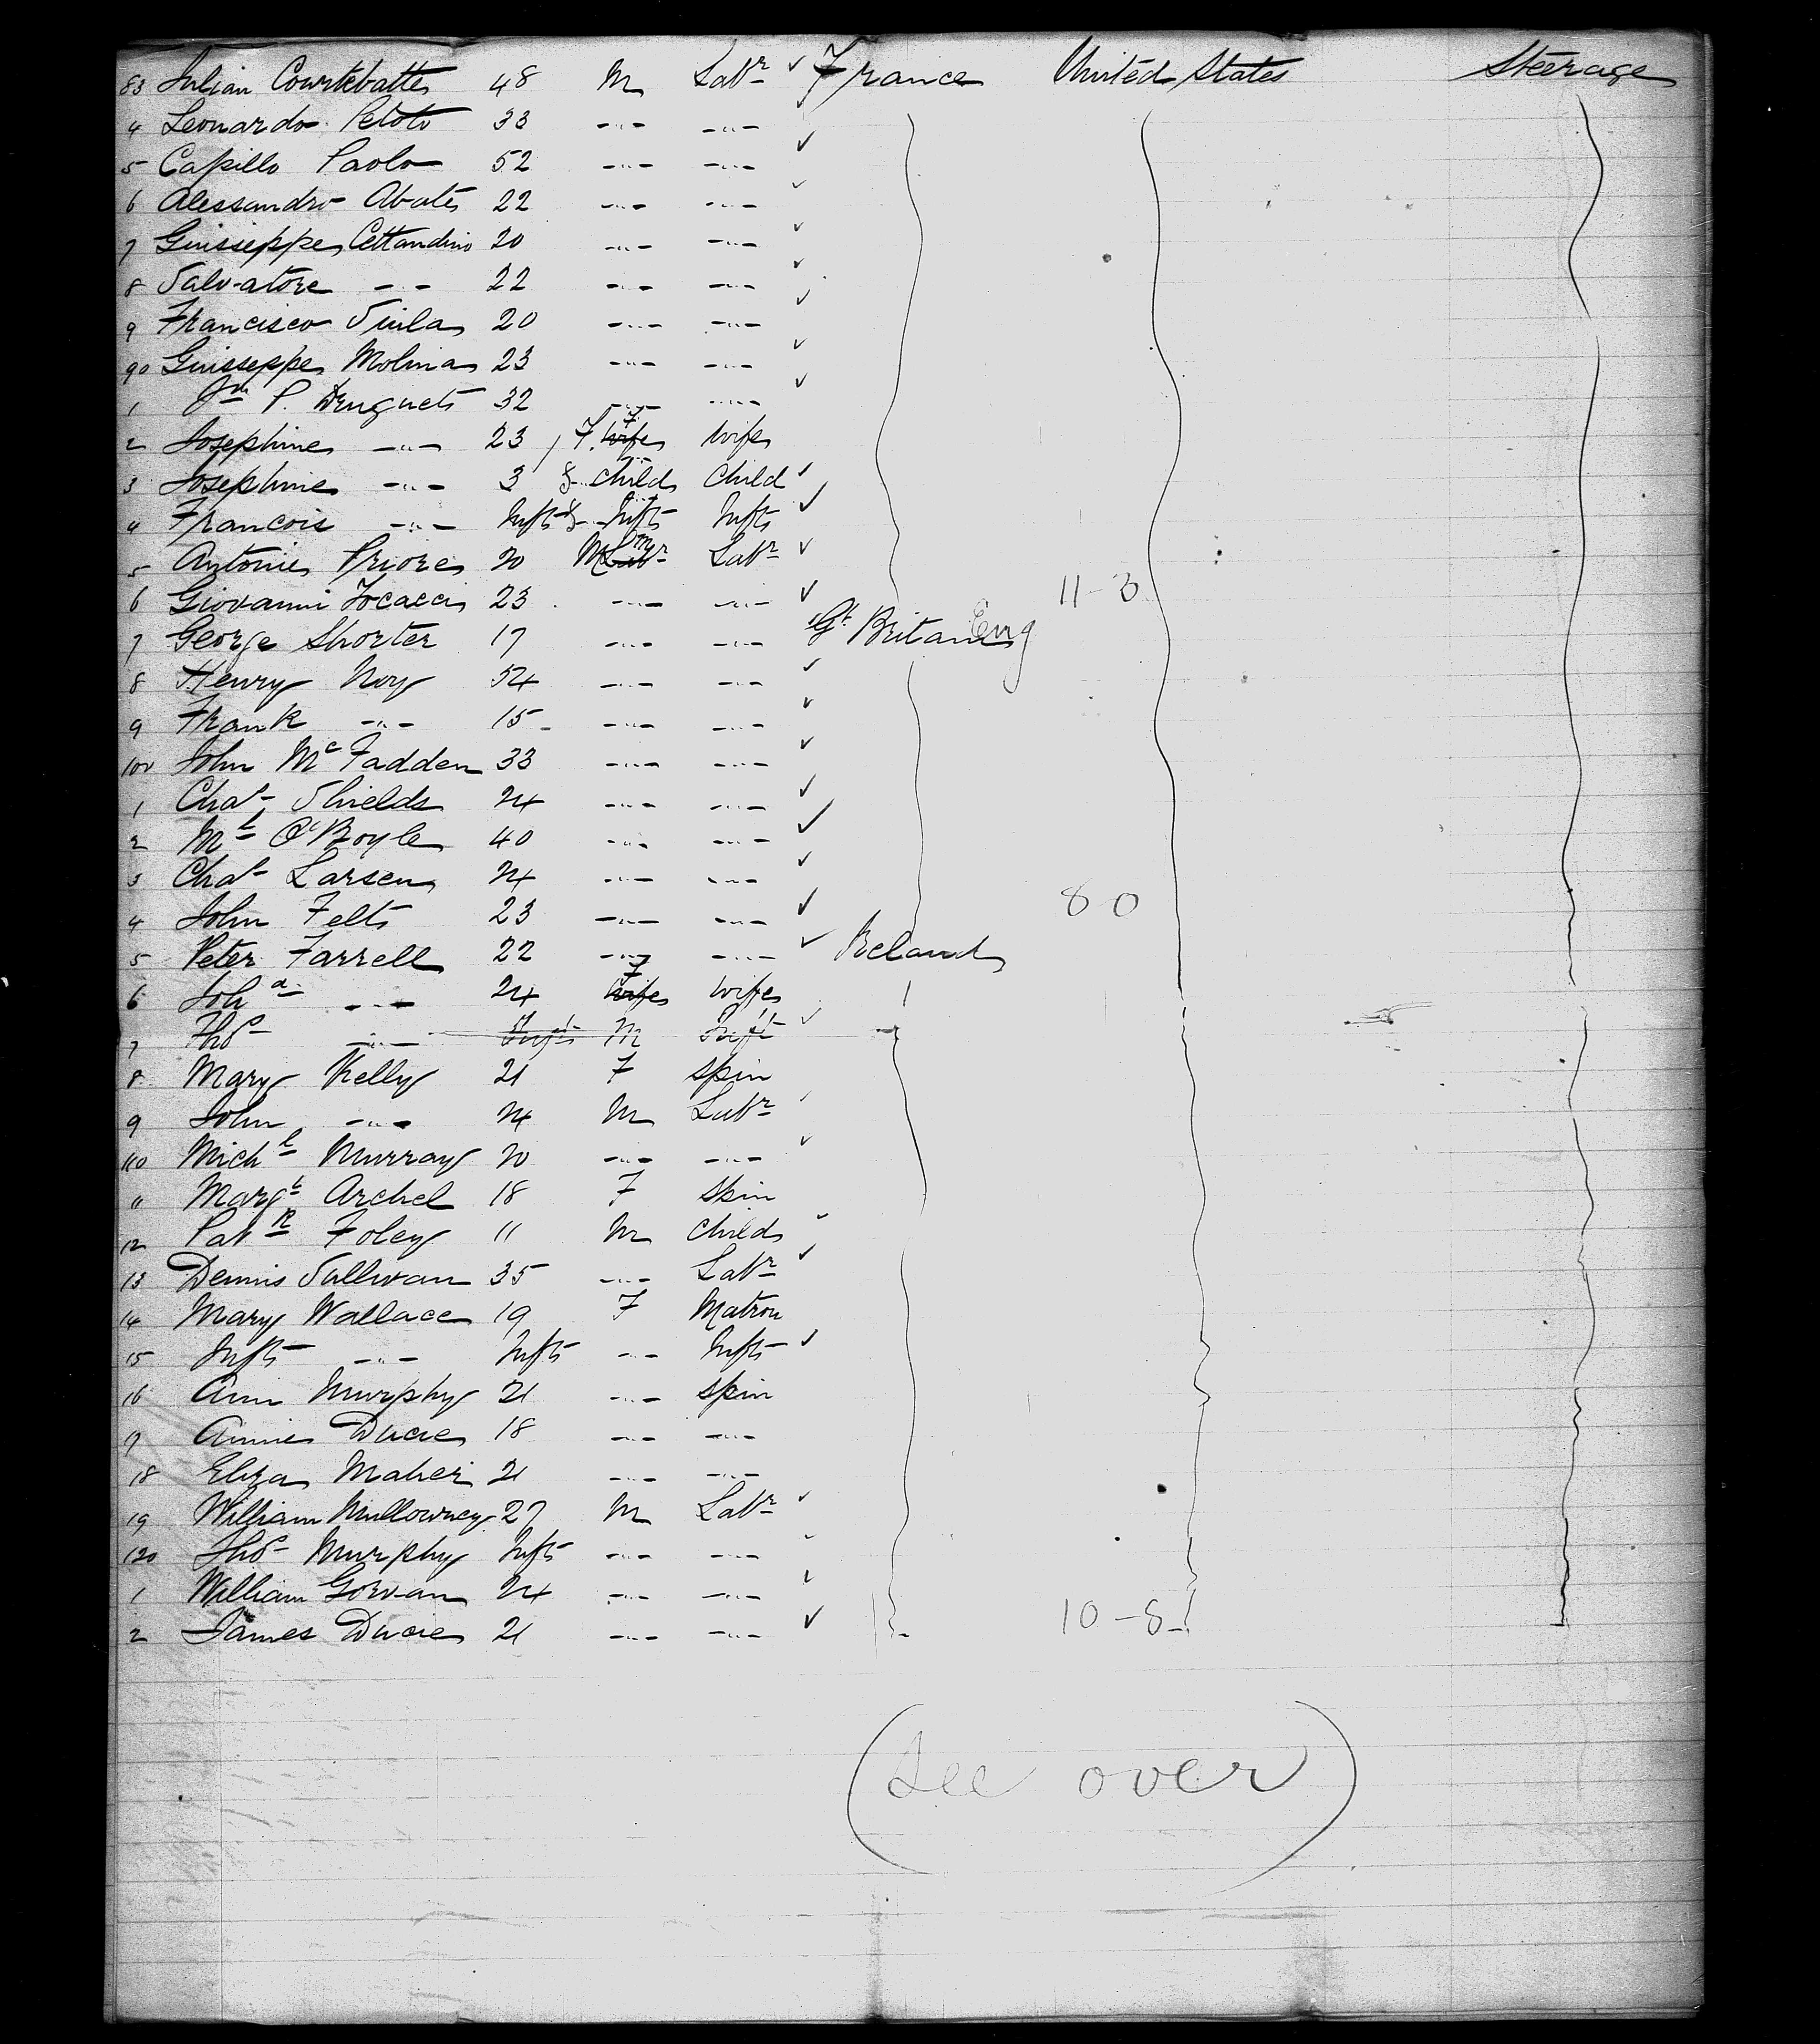 83 Julian Courtebatte 48 M Labr ✓ France United States Steerage
4 Leonardo Petoto 33 -"- -"-
5 Capillo Paolo 52 -"- -"- ✓
6 Alessandro Abate 22 -"- -"- ✓
7 Guisseppe Cettandino 20 -"- -"- ✓
8 Salvatore -"- 22 -"- -"- ✓
9 Francisco 20 -"- -"- ✓
90 Guisseppe Molina 23 -"- -"- ✓
1 Jn P. Druguet 32 -"- -"- ✓
2 Josephine -"- 23 F. wife wife
3 Josephine -"- 3 child child ✓
4 Francois -"- Inft Inft Inft ✓
5 Antonie Priore 20 M Labr Labr ✓
6 Giovanni Focacci 23 -"- -"- ✓ 11-3
7 George Shorter 17 -"- -"- Gt Britain Eng
8 Henry Noy 54 -"- -"- ✓
9 Frank -"- 15 -"- -"- ✓
100 John McFadden 33 -"- -"- ✓
1 Chas Shields 24 -"- -"- ✓
2 Ml O'Boyle 40 -"- -"- ✓
3 Chas Larsen 24 -"- -"- ✓
4 John Felt 23 -"- -"- ✓ 80
5 Peter Farrell 22 -"- -"- ✓ Ireland
6 Joha -"- 24 F wife wife
7 Thos -"- Inft M Inft ✓
8 Mary Kelly 21 F spin
9 John -"- 24 M Labr ✓
110 Michl Murray 20 -"- -"- ✓
" Margt Archel 18 F spin
12 Patk Foley 11 M child ✓
13 Dennis Sullivan 35 -"- Labr ✓
14 Mary Wallace 19 F Matron
15 Inft -"- Inft -"- Inft ✓
16 Ann Murphy 21 -"- spin
17 Annie Ducie 18 -"- -"-
18 Eliza Maher 21 -"- -"-
19 William Mullowney 27 M Labr ✓
120 Thos Murphy Inft -"- -"- ✓
1 William Gorvan 24 -"- -"- ✓
2 James Ducie 21 -"- -"- ✓ 10-8
(See over)